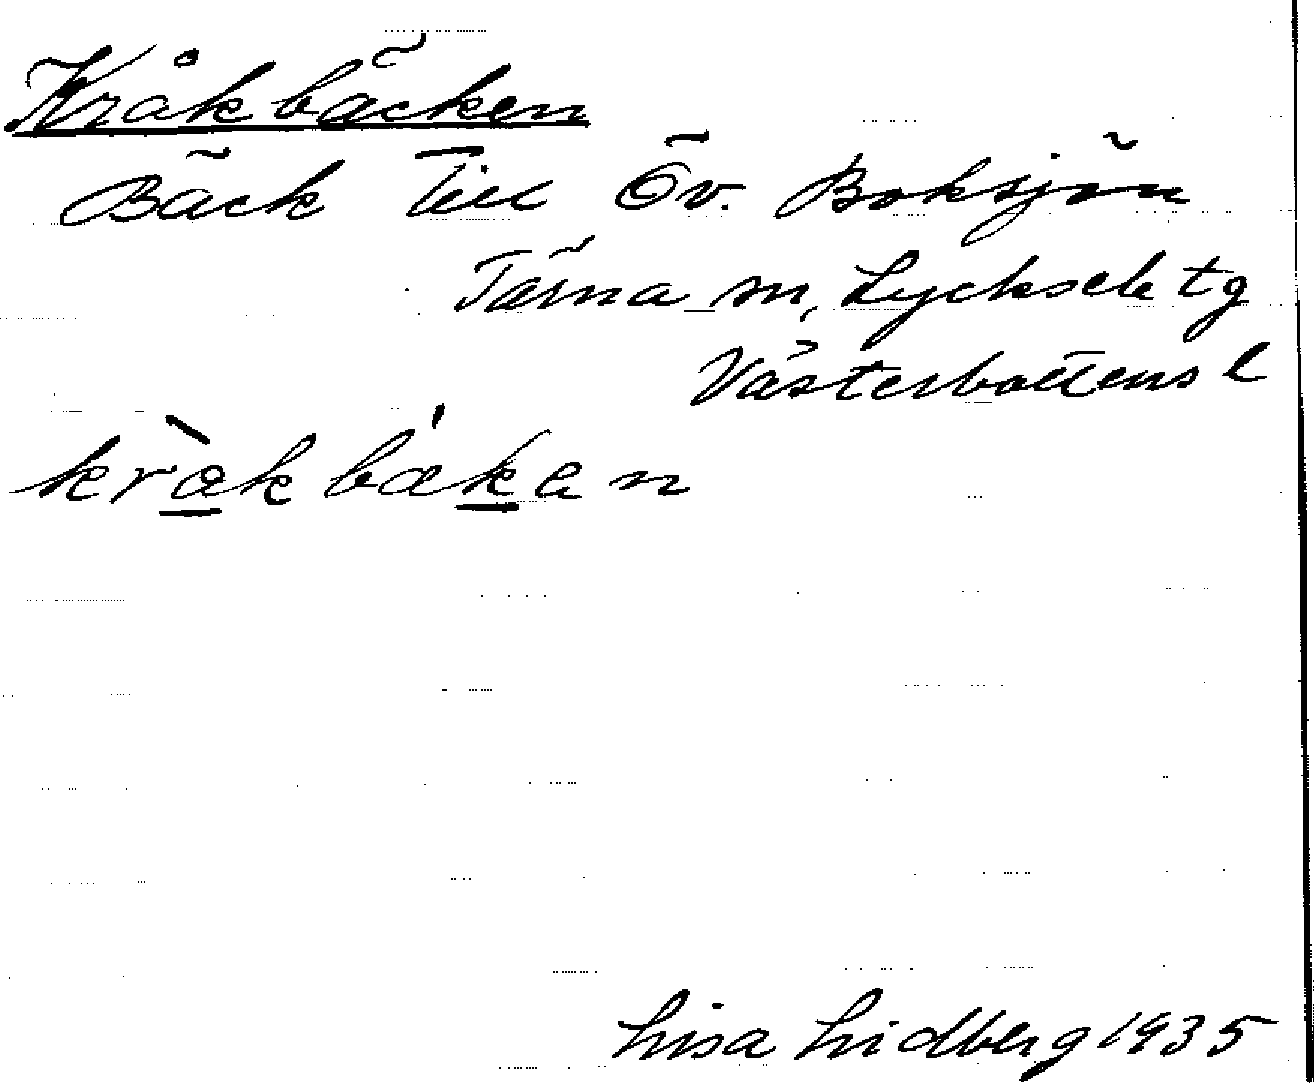 Kråkbäcken
Bäck till Öv. Boksjön
Tärna sn, Lycksele tg
Västerbottens l
Lisa Lidberg 1935